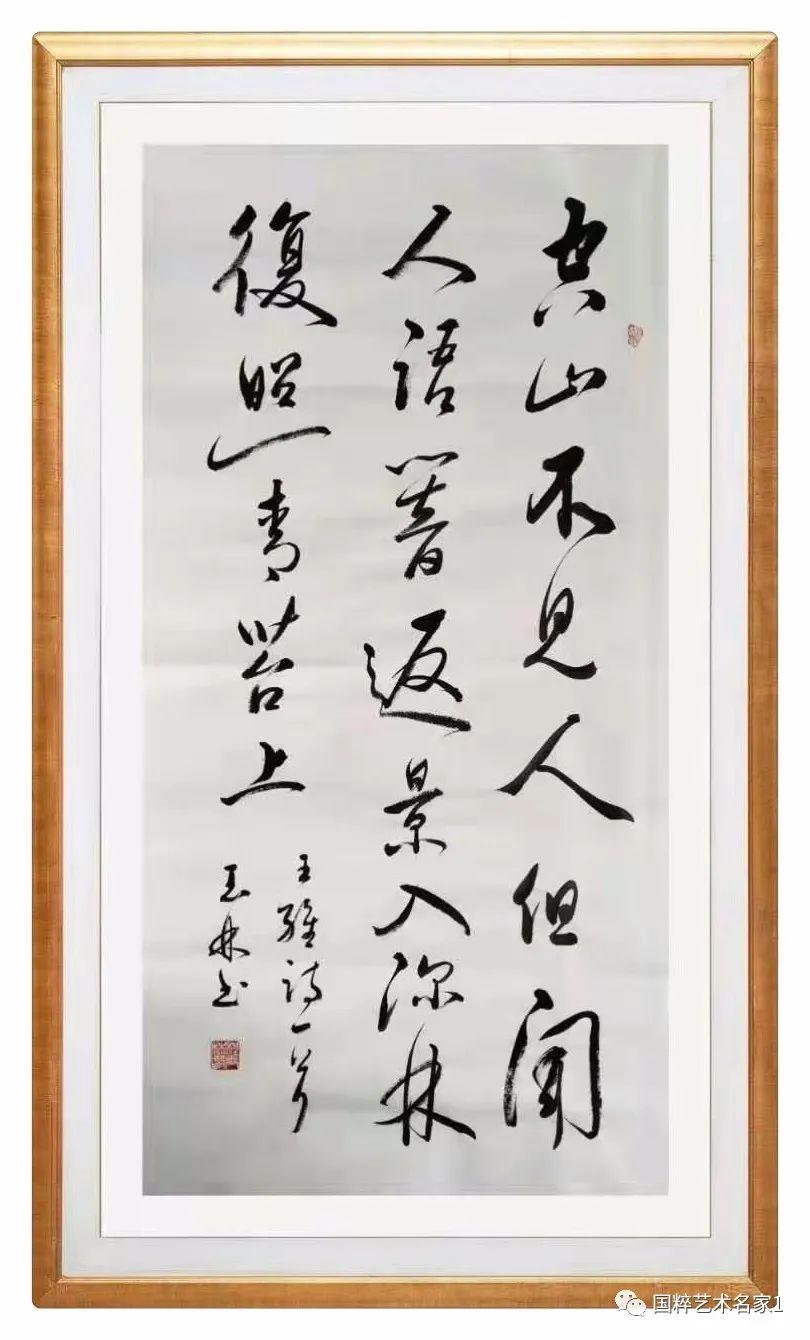 空山不見人但聞
人語響返景入深林
復照青苔上
王維詩一首
玉林书
国粹艺术名家1